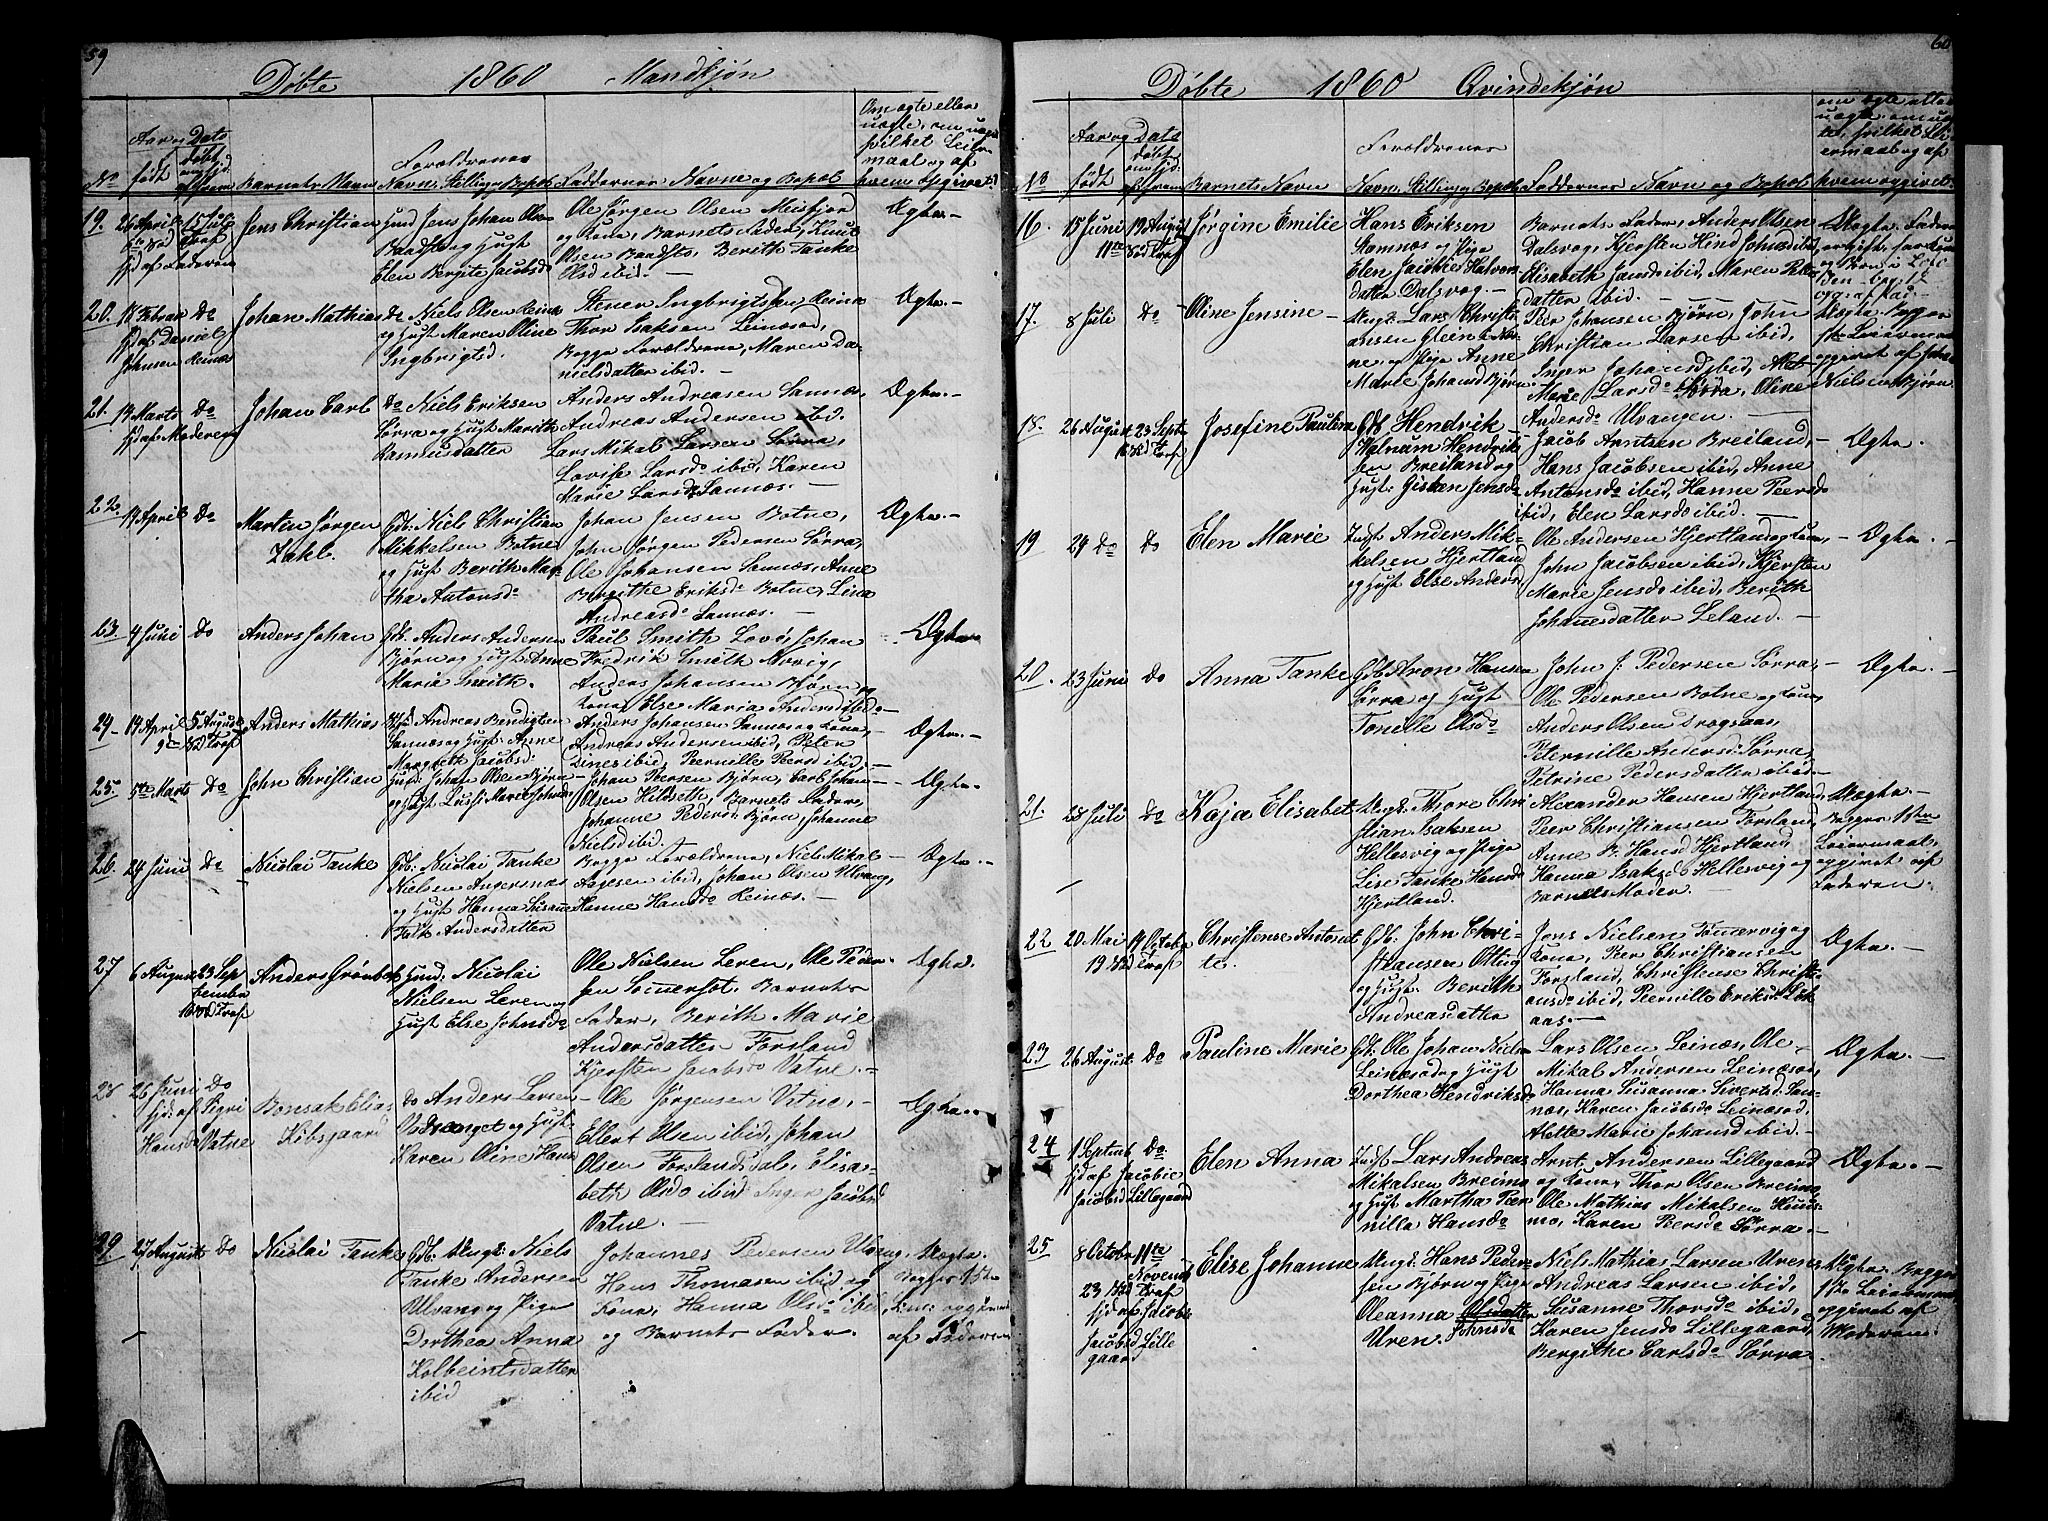 59
Døbte 1860 Mandkjøn
Aar og Dato
født
døbt
No
Barnets Navn
Forældrenes
Navne Stilling Bopæl
Faddernes Navne og Bopæl
Om ægte eller
uægte, om uægte
hvilket Leier-
maal og af
hvem opgivet
19.
26 April
15 Juli
hjd af Faderen
Jens Christian
Jens Johan Olsen
Baadsto og Hust
Elen Bergite Jacobsd
Ole Jørgen Olsen Meisfjord
og Kona, Barnets Fader, Knut
Olsen Baadsto, Berith Tanke
Olsd ibid. —
Ægte. —
20.
18 Februar
Do
hjd af Daniel
Johnsen Reinæs
Johan Mathias
do Niels Olsen Reinæs
og Hust Maren Oline
Ingbrigtsd.
Stener Ingbrigtsen Reinæs
Thor Isaksen Leinæsød,
Begge Forældrene, Maren Da-
nielsdatter ibid. —
Ægte. —
21.
13 Marts
Do
hjd af Moderen
Johan Carl
do Niels Eriksen
Sørra og Hust Marith
Rasmusdatter
Anders Andreasen Sannæs,
Andreas Andersen ibid.
Lars Mikal Larsen Sørra,
Lovise Larsdo ibid, Karen
Marie Larsdo Sannæs. —
Ægte. —
22.
19 April
Do
Martin Jørgen
Zahl.
Gdb: Niels Christian
Mikkelsen Botne
og Hust Berith Mar-
tha Antonsdo
Johan Jensen Botne,
John Jørgen Pedersen Sørra,
Ole Johansen Sannæs, Anne
Bergithe Eriksdo Botne, Lina
Andreasdo Sannæs. —
Ægte. —
23.
4 Juni
Do
Anders Johan
Gdb: Anders Andersen
Bjørn og Hust Anne
Maria Smith.
Paul Smith Lovø, Johan
Fredrik Smith
Anders Johansen Bjørn og
Kona Else Maria Andersd
Ægte
24
19 April
5 August
Anders Mathias
Andreas Bendigtsen
Sannæs og Hust: Anne
Margreth Jacobsd:
Anders Johansen Sannæs og Kona,
Andreas Andersen ibid, Peter
Zines ibid, Pernille Peersd ibid. —
Ægte. —
25.
5te Marts
Do
John Christian
Husd: Johan Olsen Bjørn
og Hust Lussi Marie Johnsd
Johan Peersen Bjørn, Carl Johan
Olsen Hildseth, Barnets Fader,
Johanne Pedersd Bjørn, Johanne
Nielsd ibid. —
Ægte. —
26.
24 Juni
Do
Nicolai Tanke
Gdb: Nicolai Tanke
Nielsen Angersnæs
og Hust Hanna Susanne
Falk Andersdatter
Begge Forældrene, Niels Mikal
Aagesen ibid, Johan Olsen Ulvang,
Hanne Hansdo Reinæs. —
Ægte. —
27
6 August
23 Sep
tember
Anders Grønbek
Husd: Nicolai
Nielsen Leren og
Hust Else Johnsdo
Ole Nielsen Leren, Ole Peder-
sen Sommerset, Barnets
Fader, Berith Marie
Andersdatter Forsland
Kjersten Jacobsdo Vatne. —
Ægte.
28
26 Juni
Do
hjd: af Sigri
Hansdo Vatne
Bonsak Elias
Kibsgaard
do Anders Larsen
Vedsenget og Hust.
Karen Oline Hansd
Ole Jørgensen Vatne,
Ellert Olsen ibid, Johan
Olsen Forslandsdal, Elisa-
beth Olsdo ibid Inger Jacobsd
Vatne. —
Ægte. —
29
27 August
Do
Nicolai Tanke
Gdb. Ungk: Niels
Tanke Andersen
Ulvang og Pige
Dorthea Anna
Kolbeintsdatter
ibid
Johannes Pedersen Ulvang,
Hans Thomasen ibid og
Kone, Hanna Olsdo ibid
og Barnets Fader.
Uægte.
Begges 1ste
Leier: opgivet
af Faderen
60
Døbte 1860 Qvindekjøn
Aar og Dato
født
døbt
No
Barnets Navn
Forældrenes
Navn, Stilling, Bopæl
Faddernes Navn og Bopæl
om ægte eller
uægte, om uæg-
te, hvilket Lei-
ermaal og af
hvem opgivet.
16.
15 Juni
19 August
Jørgine Emilie
Hans Eriksen
Sannæs og Pige
Elen Jacobie Halvor-
datter Dalsvog. —
Barnets Fader, Anders Olsen
Dalsvog, Kjersten Hind Johnsd ibid
Elisabeth Jansdo ibid, Maren Peders-
datter ibid. —
Uægte. Fader
17.
8 Juli
Do
Oline Jensine
Ungk: Lars Christi-
ansen
og Pige Anne
Marie Johansd Bjørn
Peer Johansen Bjørn, John
Christian Larsen ibid,
Inger Johansd ibid, Met-
Marie Larsdo Sørra, Oline
Andersdo Ulvangen. —
Uægte. Begges
1ste Leiermaal
opgivet af John
Nielsen Bjørn
18.
26 August
23 Septr
Josefine Paulina
Gdb Hendrik
Walnum Hendrik-
sen Breiland og
Hust: Jensdo
Jacob Arntsen Breiland,
Hans Jacobsen ibid, Anne
Antonsdo ibid, Hanne Peersdo
ibid, Elen Larsdo ibid. —
Ægte.
19
29 Do
Do
Elen Marie
Indst Anders Mik-
kelsen Hjertland
og Hust Else Andersd
Ole Andersen Hjertland og Kona,
John Jacobsen ibid, Kjersten
Marie Jensdo ibid, Berith
Johannesdatter Leland. —
Ægte. —
20.
23 Juni
Do
Anna Tanke
Gdb Aron Hansen
Sørra og Hust
Tonille Olsdo
John J: Pedersen Sørra,
Ole Pedersen Botne og Kona,
Anders Olsen Dragsaas,
Peternille Andersd: Sørra,
Petrine Pedersdatter ibid. —
Ægte. —
21.
28 Juli
Do
Kaja Elisabet
Ungk: Thore Chri
stian Isaksen
Hellesvig og Pige
Lise Tanke Hansdo
Hjertland.
Alexander Hansen Hjertland,
Peer Christiansen Forsland,
Anne B. Hansd Hjertland,
Hanna Isaksd Hellesvig og
Barnets Moder. —
Uægte. —
Begges 1ste
Leiermaal,
opgivet af
Faderen.
22
20 Mai
19 Octobr
Christense Antonet
te.
Gdb: John Chri-
stiansen Otting
og Hust: Berith
Andreasdatter
Jens Nielsen Tømmervig og
Kona, Peer Christiansen
Forsland, Christense Christi-
ansdo ibid, Pernille Eriksd: Løk
aas. —
Ægte. —
23
26 August
Do
Pauline Marie
Gdb: Ole Johan Niels
Leinæsød og Hust
Dorthea Hendriksdo
Lars Olsen Leinæs, Ole
Mikal Andersen Leinæsød,
Hanna Susanna Sivertsd: San-
næs, Karen Jacobsdo Leinæsød,
Alette Marie Johansd ibid. —
Ægte. —
24
1 Septmb
Do
hjd af Jacobie
Jacobsd Lillegaard
Elen Anna
Indst Lars Andreas
Mikalsen Breimo
og Hust Martha Peer
nilla Hansdo
Arnt Andersen Lillegaard
og Kona, Thor Olsen Breimo,
Ole Mathias Mikalsen Huus-
mo, Karen Persdo Sørra. —
Ægte. —
25
8 Octobr
11te
Novemb
hjd af Jacobie
Jacobsd Lille
gaard
Elise Johanne
Ungk: Hans Peder-
sen Bjørn og Pige
Oleanna Olsdatter
Uren. Johnsdo
Niels Mathias Larsen Uren,
Andreas Larsen ibid,
Susanne Thorsdo ibid,
Karen Jensdo Lillegaard,
Bergithe Carlsdo Sørra.
Uægte. Begges
1ste Leiermaal
opgivet af
Moderen.